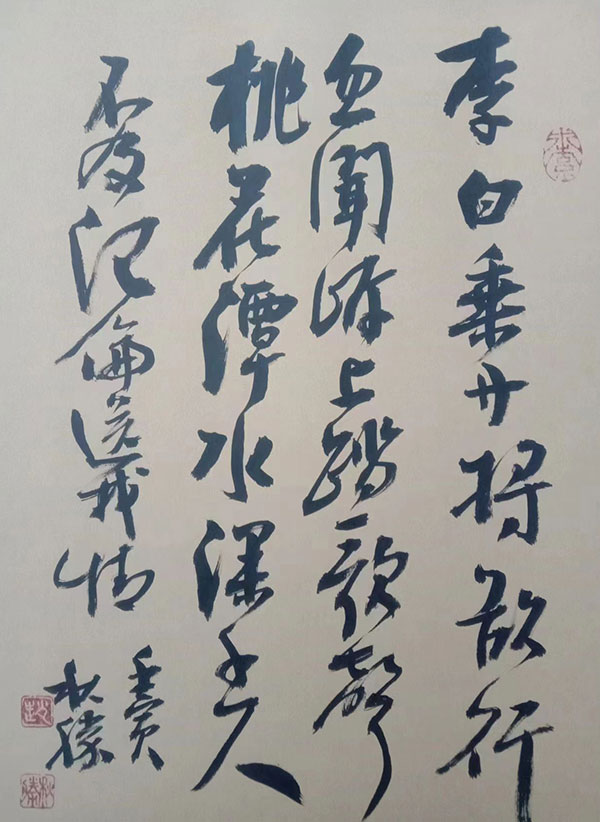 李白乘舟将欲行
忽聞岸上踏歌聲
桃花潭水深千尺
不及汪倫送我情
壬寅
趙